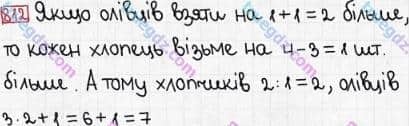 812 Якщо олівців взяти на 1+1=2 більше,
то кожен хлопець візьме на 4-3=1 шт.
більше. А тому хлопчиків 2:1=2, олівців
3·2+1=6+1=7